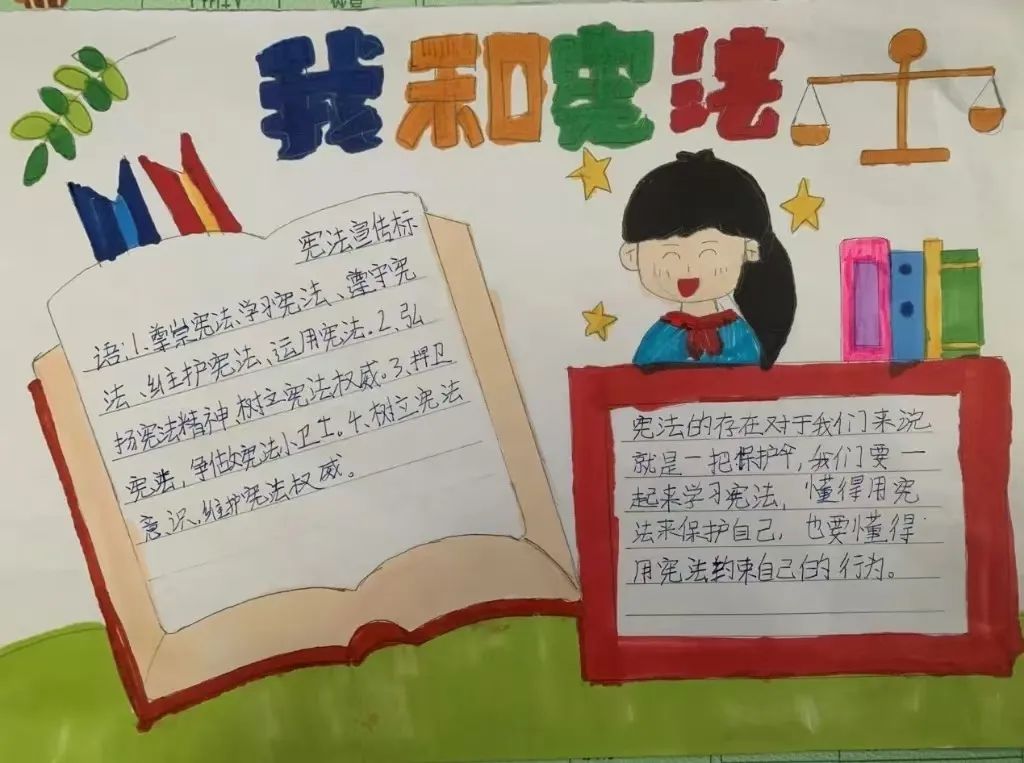 我和宪法
宪法宣传标
语:1、尊崇宪法、学习宪法、遵守宪
法、维护宪法、运用宪法。2、弘
扬宪法精神、树立宪法权威。3、捍卫
宪法,争做宪法小卫士。4、树立宪法
意识、维护宪法权威。
宪法的存在对于我们来说
就是一把保护伞,我们要一
起来学习宪法,懂得用宪
法来保护自己,也要懂得
用宪法约束自己的行为。